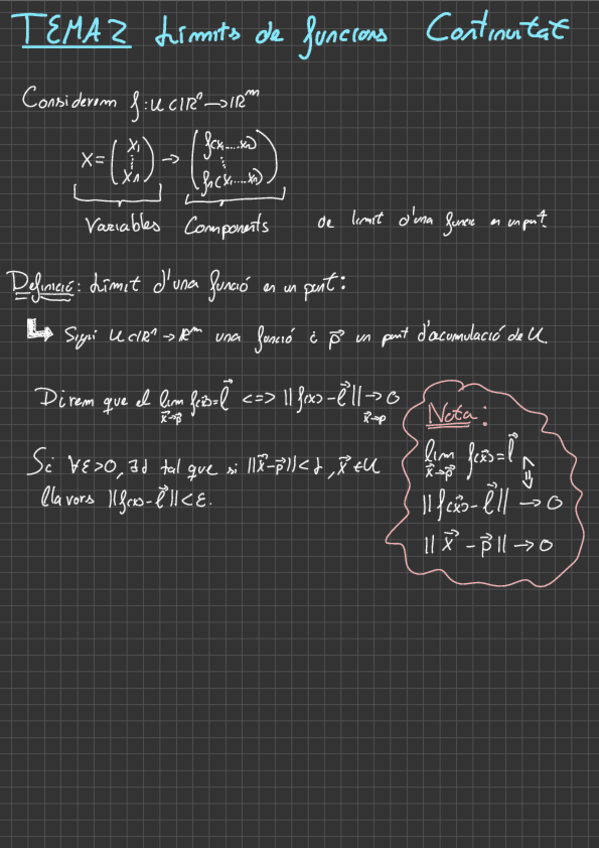 TEMA 2 Límits de funcions Continuitat
Considerem f: U ⊂ ℝⁿ → ℝᵐ
X = (x₁ ⋮ xₙ) → (f(x₁....xₙ) ⋮ fₙ(x₁....xₙ))
Variables Components de límit d'una funció en un punt
Definició: Límit d'una funció en un punt:
↳ Sigui U ⊂ ℝⁿ → ℝᵐ una funció i p⃗ un punt d'acumulació de U.
Direm que el lim f(x⃗) = l⃗ <=> ||f(x) - l⃗|| → 0
x⃗→p⃗ x⃗→p
Si ∀ε>0, ∃δ tal que si ||x⃗ - p⃗|| < δ, x⃗ ∈ U
llavors ||f(x) - l⃗|| < ε.
Nota:
lim f(x⃗) = l⃗
x⃗→p⃗
⇕
||f(x⃗) - l⃗|| → 0
||x⃗ - p⃗|| → 0